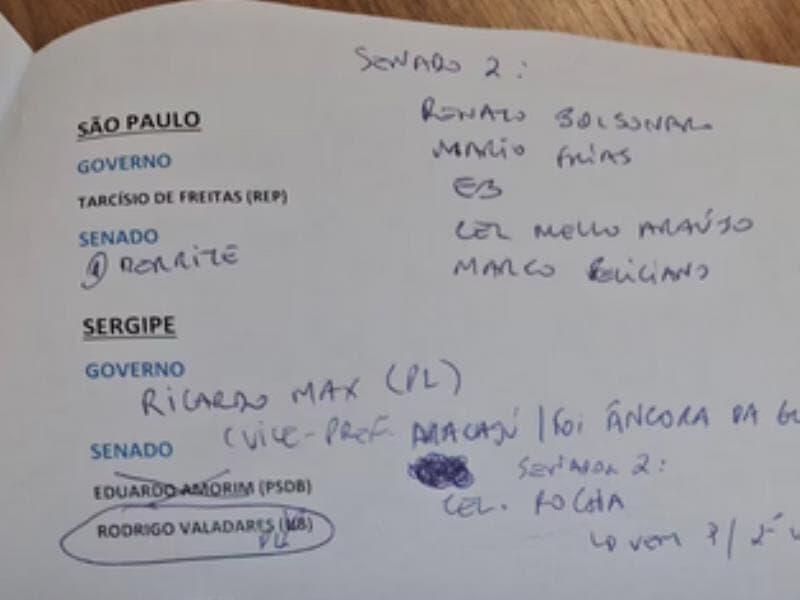 SENADO 2:
SÃO PAULO
RENATO BOLSONARO
GOVERNO
MARIO FRIAS
TARCÍSIO DE FREITAS (REP)
EB
SENADO
CEL MELLO ARAÚJO
① DERRITE
MARCO FELICIANO
SERGIPE
GOVERNO
RICARDO MAX (PL)
(VICE-PREF. ARACAJÚ / FOI ÂNCORA DA
SENADO
SENADOR 2:
EDUARDO AMORIM (PSDB)
CEL. ROCHA
RODRIGO VALADARES
PL
VEM P/ 2ª